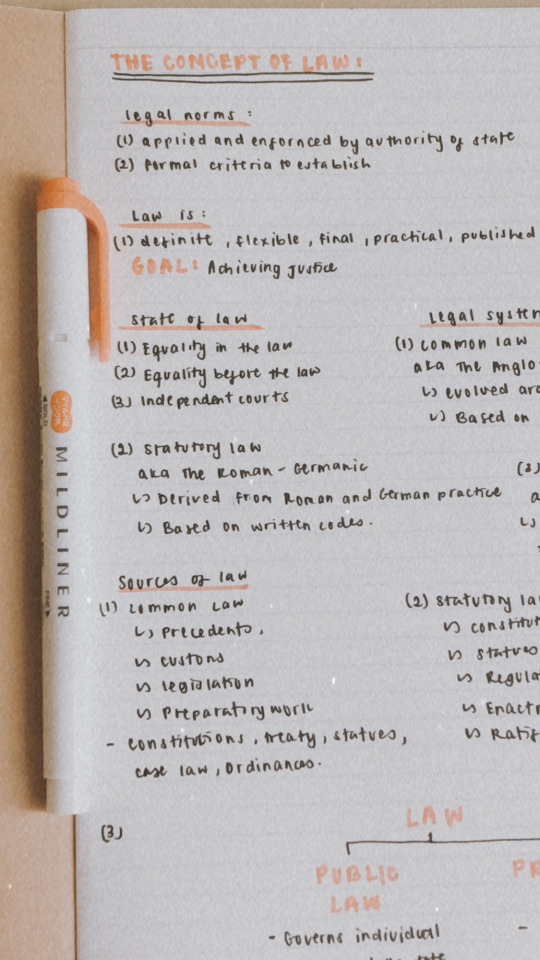 THE CONCEPT OF LAW:
legal norms:
(1) applied and enfornced by authority of state
(2) Formal criteria to establish
Law is:
(1) definite, flexible, final, practical, published
GOAL: Achieving justice
State of law
(1) Equality in the law
(2) Equality before the law
(3) Independent courts
Legal system
(1) Common law
aka The Anglo
↳ evolved aro
↳ Based on
(2) Statutory law
aka The Roman-Germanic
↳ Derived from Roman and German practice
↳ Based on written codes.
(3)
a
↳
Sources of law
(1) Common Law
↳ Precedents,
↳ customs
↳ legislation
↳ Preparatory work
- constitutions, treaty, statues,
case law, ordinances.
(2) Statutory la
↳ constitut
↳ statues
↳ Regula
↳ Enactm
↳ Ratif
(3)
LAW
PUBLIC
LAW
- Governs individual
state
PR
-
MILDLINER